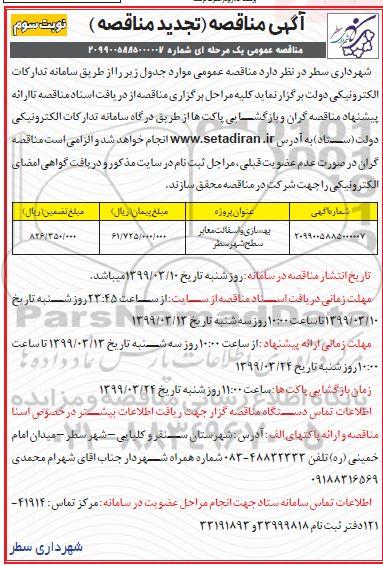 آگهی مناقصه (تجدید مناقصه)
نوبت سوم
مناقصه عمومی یک مرحله ای شماره ۲۰۹۹۰۰۵۸۸۵۰۰۰۰۰۷
شهرداری سطر در نظر دارد مناقصه عمومی موارد جدول زیر را از طریق سامانه تدارکات
الکترونیکی دولت برگزار نماید کلیه مراحل برگزاری مناقصه از دریافت اسناد مناقصه تا ارائه
پیشنهاد مناقصه گران و بازگشــایی پاکت ها از طریق درگاه سامانه تدارکات الکترونیکی
دولت (ســتاد) به آدرس www.setadiran.ir انجام خواهد شد و الزامی است مناقصه
گران در صورت عدم عضویت قبلی، مراحل ثبت نام در سایت مذکور و دریافت گواهی امضای
الکترونیکی را جهت شرکت در مناقصه محقق سازند.
شماره آگهی عنوان پروژه مبلغ پیمان (ریال) مبلغ تضمین (ریال)
۲۰۹۹۰۰۵۸۸۵۰۰۰۰۰۷ بهسازی و آسفالت معابر سطح شهر سطر ۶۱/۷۲۵/۰۰۰/۰۰۰ ۸۲۶/۳۵۰/۰۰۰
تاریخ انتشار مناقصه در سامانه: روز شنبه تاریخ ۱۳۹۹/۰۳/۱۰ میباشد.
مهلت زمانی دریافت اســناد مناقصه از ســایت: از ســاعت ۲۳:۴۵ روز شــنبه تاریخ
۱۳۹۹/۰۳/۱۰ تا ساعت ۱۰:۰۰ روز سه شنبه تاریخ ۱۳۹۹/۰۳/۱۳
مهلت زمانی ارائه پیشنهاد: از ساعت ۱۰:۰۰ روز سه شــنبه تاریخ ۱۳۹۹/۰۳/۱۳ تا ساعت
۱۰:۰۰ روز شنبه تاریخ ۱۳۹۹/۰۳/۲۴
زمان بازگشایی پاکت ها: ساعت ۱۱:۰۰ روز شنبه تاریخ ۱۳۹۹/۰۳/۲۴
اطلاعات تماس دســتگاه مناقصه گزار جهت ریافت اطلاعات بیشــتر در خصوص اسنا
مناقصه و ارائه پاکتهای الف: آدرس: شهرستان ســنقر و کلیایی – شهر سطر – میدان امام
خمینی (ره) تلفن ۴۸۸۳۲۳۳۲-۰۸۳ شماره همراه شــهردار جناب اقای شهرام محمدی
۰۹۱۸۸۳۱۶۵۶۹
اطلاعات تماس سامانه ستاد جهت انجام مراحل عضویت در سامانه: مرکز تماس: ۴۱۹۱۴-
۰۲۱ دفتر ثبت نام ۳۳۹۹۹۸۱۸ و ۳۳۱۹۱۸۹۳
شهرداری سطر